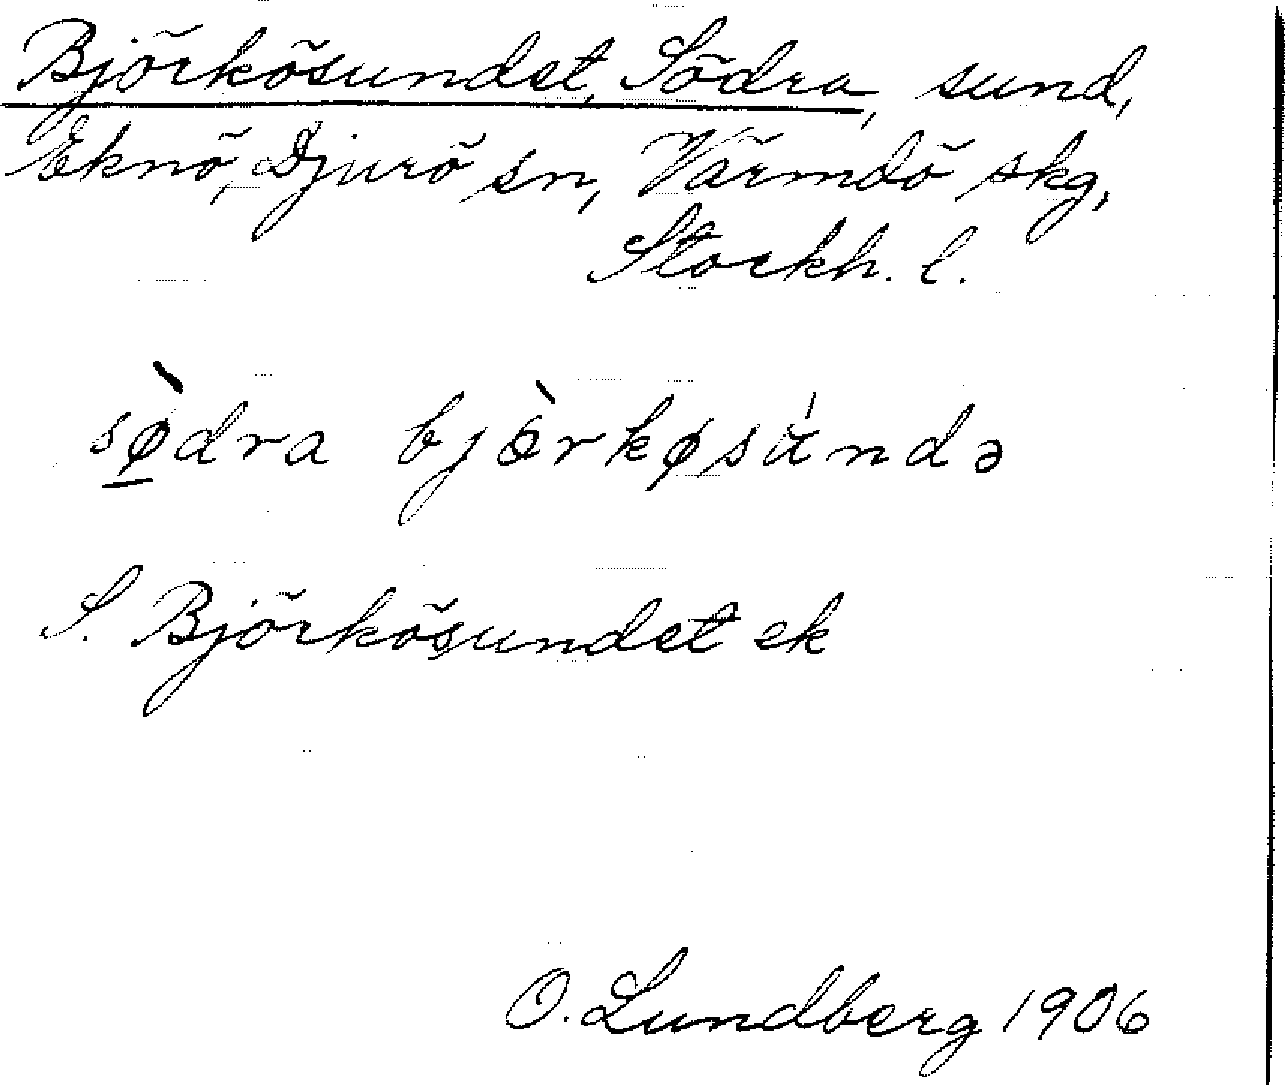 Björkösundet, Södra, sund,
Eknö, Djurö sn, Värmdö skg,
Stockh. l.
sø̀dra bjæ̀rkøsúndə
S. Björkösundet ek
O. Lundberg 1906